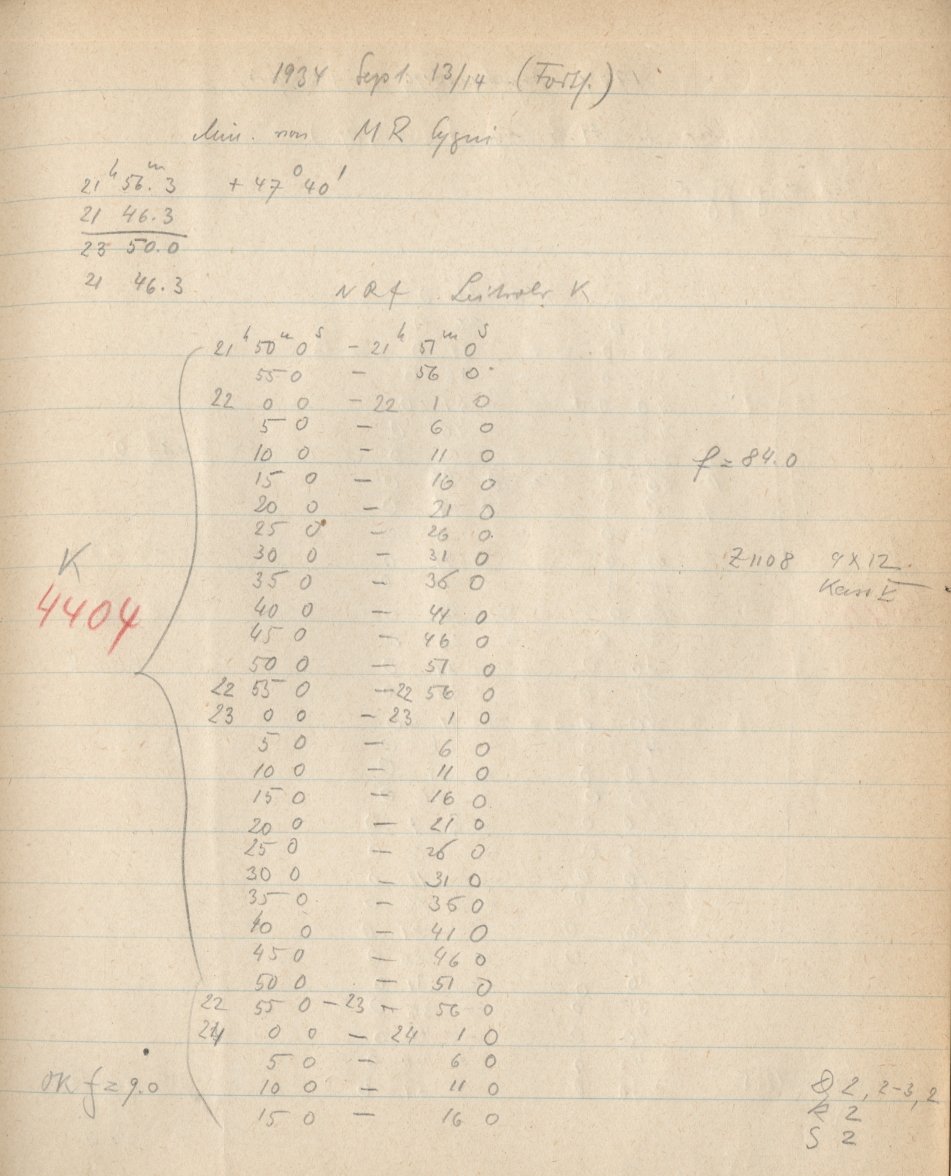 1934 Sept. 13/14 (Forts.)
Min. von MR Cygni
21h 56m.3 + 47° 40'
21 46.3
23 50.0
21 46.3
NRf. Leitrohr K
21h 50m 0s - 21h 51m 0s
55 0 - 56 0
22 0 0 - 22 1 0
5 0 - 6 0
10 0 - 11 0
f = 84.0
15 0 - 16 0
20 0 - 21 0
25 0 - 26 0
30 0 - 31 0
Z1108 9x12.
K
35 0 - 36 0
Kass V
4404
40 0 - 41 0
45 0 - 46 0
50 0 - 51 0
22 55 0 - 22 56 0
23 0 0 - 23 1 0
5 0 - 6 0
10 0 - 11 0
15 0 - 16 0
20 0 - 21 0
25 0 - 26 0
30 0 - 31 0
35 0 - 36 0
40 0 - 41 0
45 0 - 46 0
50 0 - 51 0
22 55 0 - 23 - 56 0
24 0 0 - 24 1 0
5 0 - 6 0
OK f = 9.0
10 0 - 11 0
D 2, 2-3, 2
15 0 - 16 0
R 2
S 2